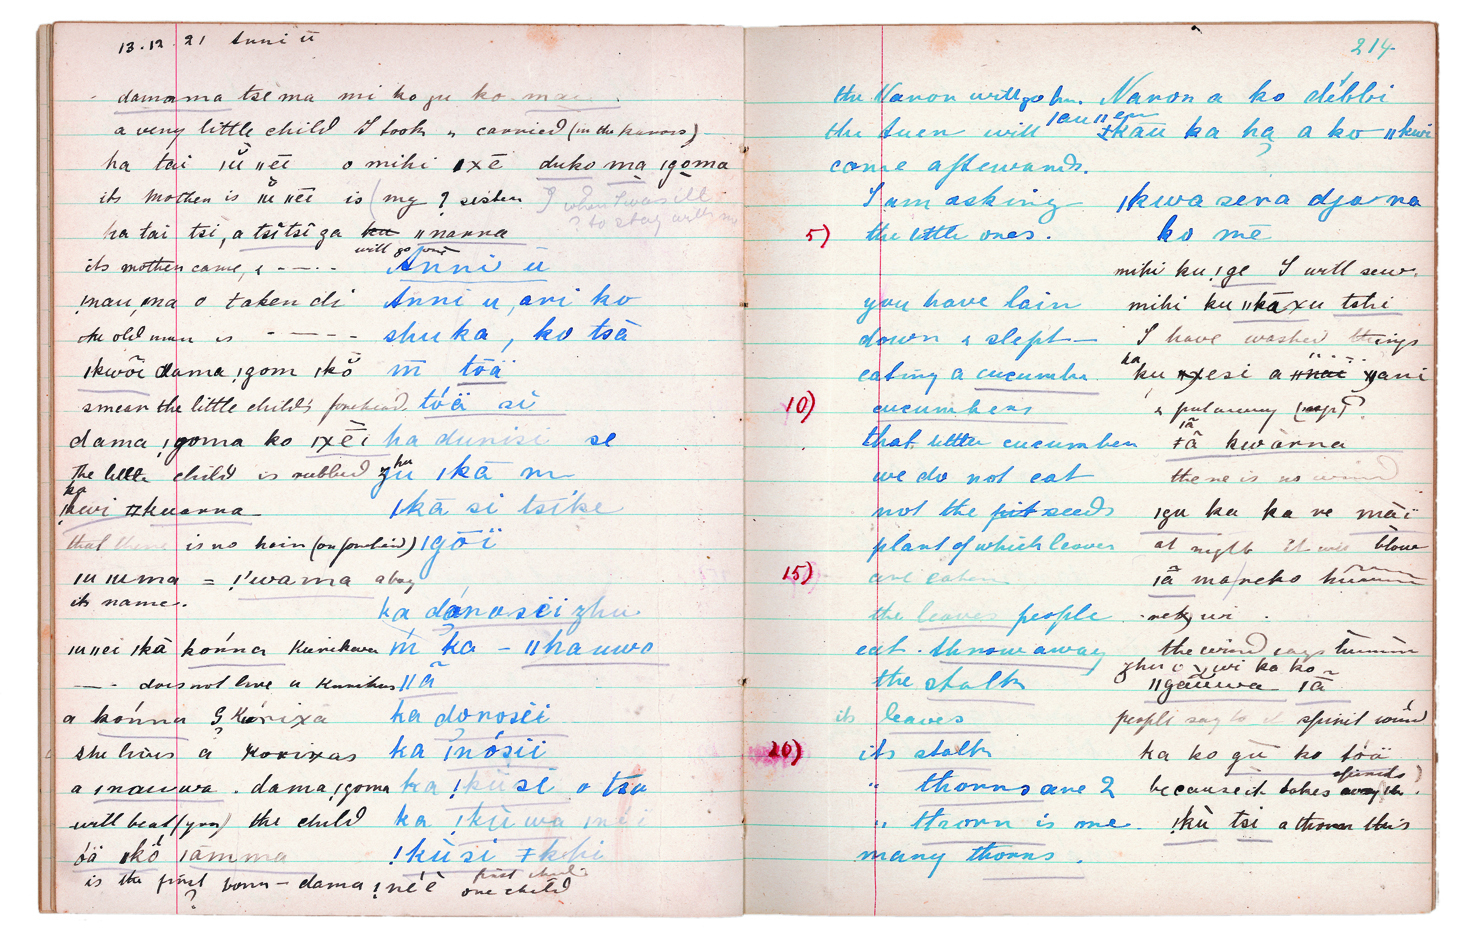 13.12.21 Anni ü
damama tse ma mi ko gu ko mau
a very little child I took & carried (in the kaross)
ha tai ǀŭ ǁēi o mihi ǀxē duko ma ǀgoma
its mother is ǀŭ ǁēi is (my ? sister I when I was ill
? to stay with me
ha tai tsi, a tsitsi ga ku ǁnanna
its mother came, & -----. will go over Anni ü
ǃnau ǃna o ǂaken di Anni u, ari ko
the old man is ----- shuka, ko tsā
ǀkwõi dama ǃgom ǀkŏ m̄ tōä
smear the little child's forehead tóä si
dama ǃgoma ko ǀxēi ha dunisi se
The little child is rubbed zhu ǀkā m
ka ǀkwi ǂkuarna ǀkā si tsike
that there is no hair (on forehead) ǀgōï
ǀu ǀuma = ǃ'wama a boy
its name.
ka dánosëi zhu
ǀu ǁei ǀkā kónna Kurikara ḿ ka - ǁhauwa
--- does not love a Kurikus ǁã
a kónna ? Kórixa ha donosëi
she loves a Korixas ka ǀnósii
a ǀnauwa. dama ǃgoma ka ǃkùsē o tsa
will beat (you) the child ka ǃkù wa ǀnei
óä ǁkŏ ǀāmma ǃkùsi ǂkehi
is the first born - dama ǃnéē first child one child
?
214
the Naron will go hun. Naron a ko débbi
the Auen will ǀau ǁen ǂkau ka ha a ko ǁkwi
come afterwards. ?
I am asking ǀkwa sera djo ra
5) the little ones. ko mē
mihi ku ǃge I will sew.
you have lain mihi ku ǁkāxu tshi
down & slept — I have washed things
eating a cucumber. ka ku xesi a ǁnai ǁani
10) cucumbers & put away (up) ?
that little cucumber ǀã ǂã kwàrna
we do not eat there is no wind
not the pit seeds ǀgu ka ka re māï
plant of which leaves at night it will blow
15) are eaten ǀã ma/reko hūmm
the leaves people
eat. throw away the wind says hūmm
the stalk zhu wi ko ko ǁgauwa ǀã
its leaves people say to it spirit wind
20) its stalk ka ko gū ko tóä
" thorns are 2 because it takes away the spirits).
" thorn is me. ǃkù tsi a thorn this
many thorns.